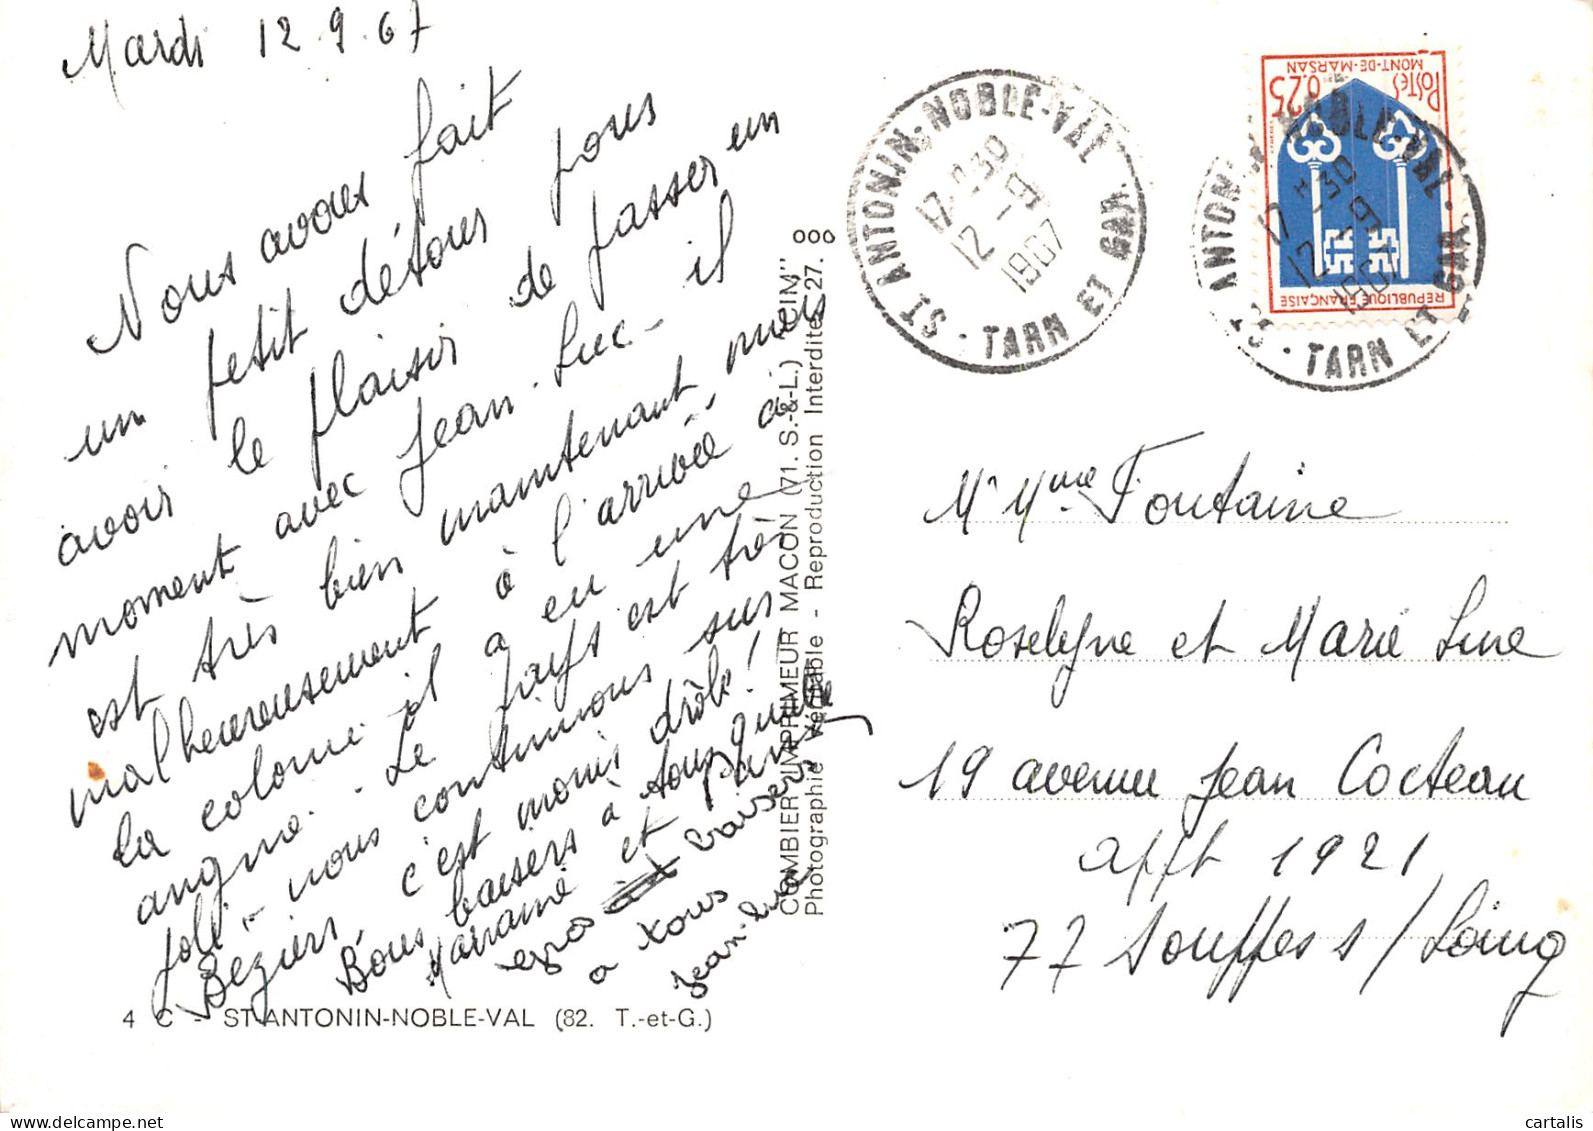 Mardi 12.9.67
Nous avons fait
un petit détour pour
avoir le plaisir de passer un
moment avec Jean-Luc - il
est très bien maintenant, mais
malheureusement à l'arrivée à
la colonie il a eu une
angine. Le pays est très
joli - nous continuons sur
Béziers, c'est moins drôle !
Bons baisers à tous quatre
Marraine et
gros baisers
a tous
Jean-Luc
4 C - ST-ANTONIN-NOBLE-VAL (82. T.-et-G.)
COMBIER IMPRIMEUR MACON (71. S.-&-L.) "CIM"
Photographie Véritable - Reproduction Interdite 27.
000
ST ANTONIN-NOBLE-VAL
17 H 30
12 - 9
1967
TARN ET GAR.
POSTES 0.25
MONT-DE-MARSAN
REPUBLIQUE FRANÇAISE
ST ANTONIN-NOBLE-VAL
17 H 30
12 - 9
196
TARN ET GAR.
Mr Mme Fontaine
Roselyne et Marie Line
19 avenue Jean Cocteau
appt 1921
77 Souppes s/Loing
delcampe.net
cartalis